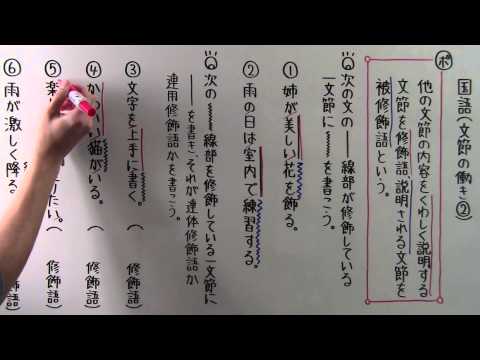 国語(文節の働き②)
ポ
他の文節の内容をくわしく説明する
文節を修飾語、説明される文節を
被修飾語という。
次の文の――線部が修飾している
一文節に〰〰を書こう。
①姉が美しい花を飾る。
②雨の日は室内で練習する。
次の〰〰線部を修飾している一文節に
――を書き、それが連体修飾語か
連用修飾語かを書こう。
③文字を上手に書く。(修飾語)
④かわいい猫がいる。(修飾語)
⑤楽 たい。(修飾語)
⑥雨が激しく降る。 修飾語)